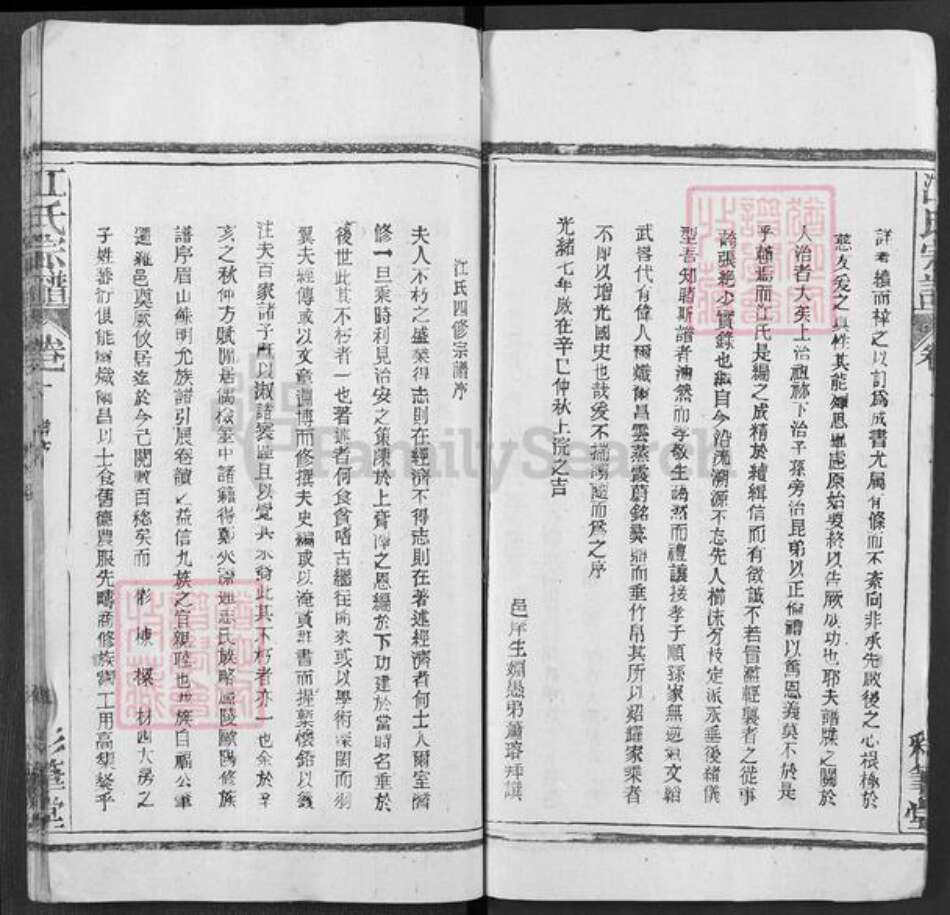 詳考績而梓之以訂為成書尤屬有條而不紊向非承先啟後之心根極於
慈友爰之真性其能殫思慮原始要終以告厥成功也耶夫譜牒之關於
人治者大矣上治祖禰下治子孫旁治昆弟以正倫禮以篤恩義莫不於是
乎賴焉而江氏是編之成精於纘緝信而有徵誠不若冒濫輕襲者之從事
誇張絕少實錄也繼自今沿流溯源不忘先人櫛沐分枝定派永垂後緒儀
型吾知睹斯譜者油然而孝敬生藹然而禮讓接孝子順孫家無逆氣文紹
武畧代有偉人爾熾爾昌雲蒸霞蔚銘彝鼎而垂竹帛其所以焜耀家乘者
不即以增光國史也哉爰不揣謭陋而為之序
光緒七年歲在辛巳仲秋上浣之吉
邑庠生姻愚弟蕭瑢拜譔
江氏四修宗譜序
夫人不朽之盛業得志則在經濟不得志則在著述經濟者何士人爾室潛
修一旦乘時利見治安之策陳於上膏澤之恩編於下功建於當時名垂於
後世此其不朽者一也著述者何食貧嗜古繼往開來或以學術深閎而羽
翼夫經傳或以文章淵博而修撰夫史編或以淹貫群書而握槧懷鉛以箋
注夫百家諸子所以淑諸寰區且以覺夫來者此其不朽者亦一也余於辛
亥之秋仲方賦閒居偶檢室中諸籍得鄭夾漈通志氏族略廬陵歐陽修族
譜序眉山蘇明允族譜引展卷讀之益信九族之宜親睦也世族自福公筆
遷羅邑奠厥攸居迄於今已閱數百稔矣而 彰 城 櫟 材四大房之
子姓蕃衍俱能爾熾爾昌以士食舊德農服先疇商修族鬻工用高曾榘乎
江氏宗譜
卷一
譜序
彩筆堂
江氏宗譜
卷
彩筆堂
FamilySearch